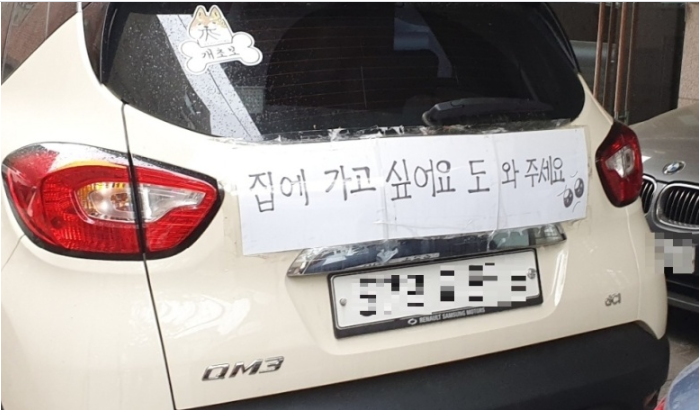 大
개초보
집에 가고 싶어요 도 와 주세요
RENAULT SAMSUNG MOTORS
dCi
QM3